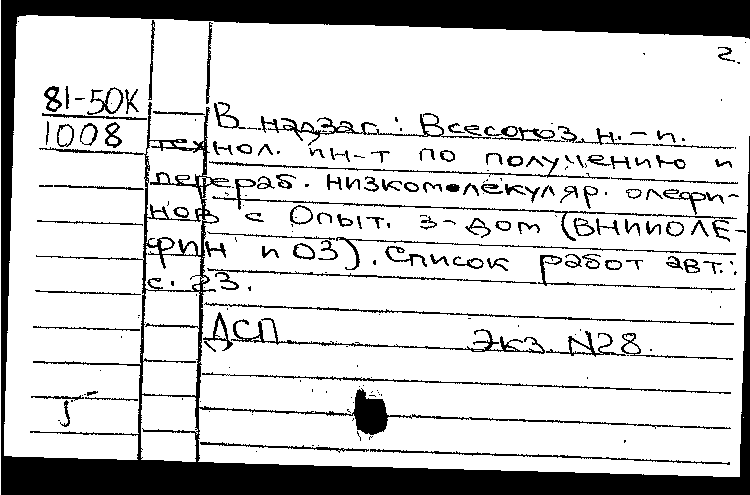 2.
81-50К
1008
В надзаг.: Всесоюз. н.-и.
технол. ин-т по получению и
перераб. низкомолекуляр. олефи-
нов с Опыт. з-дом (ВНИИОЛЕ-
ФИН и ОЗ). Список работ авт.:
с. 23.
ДСП Экз. N28.
5